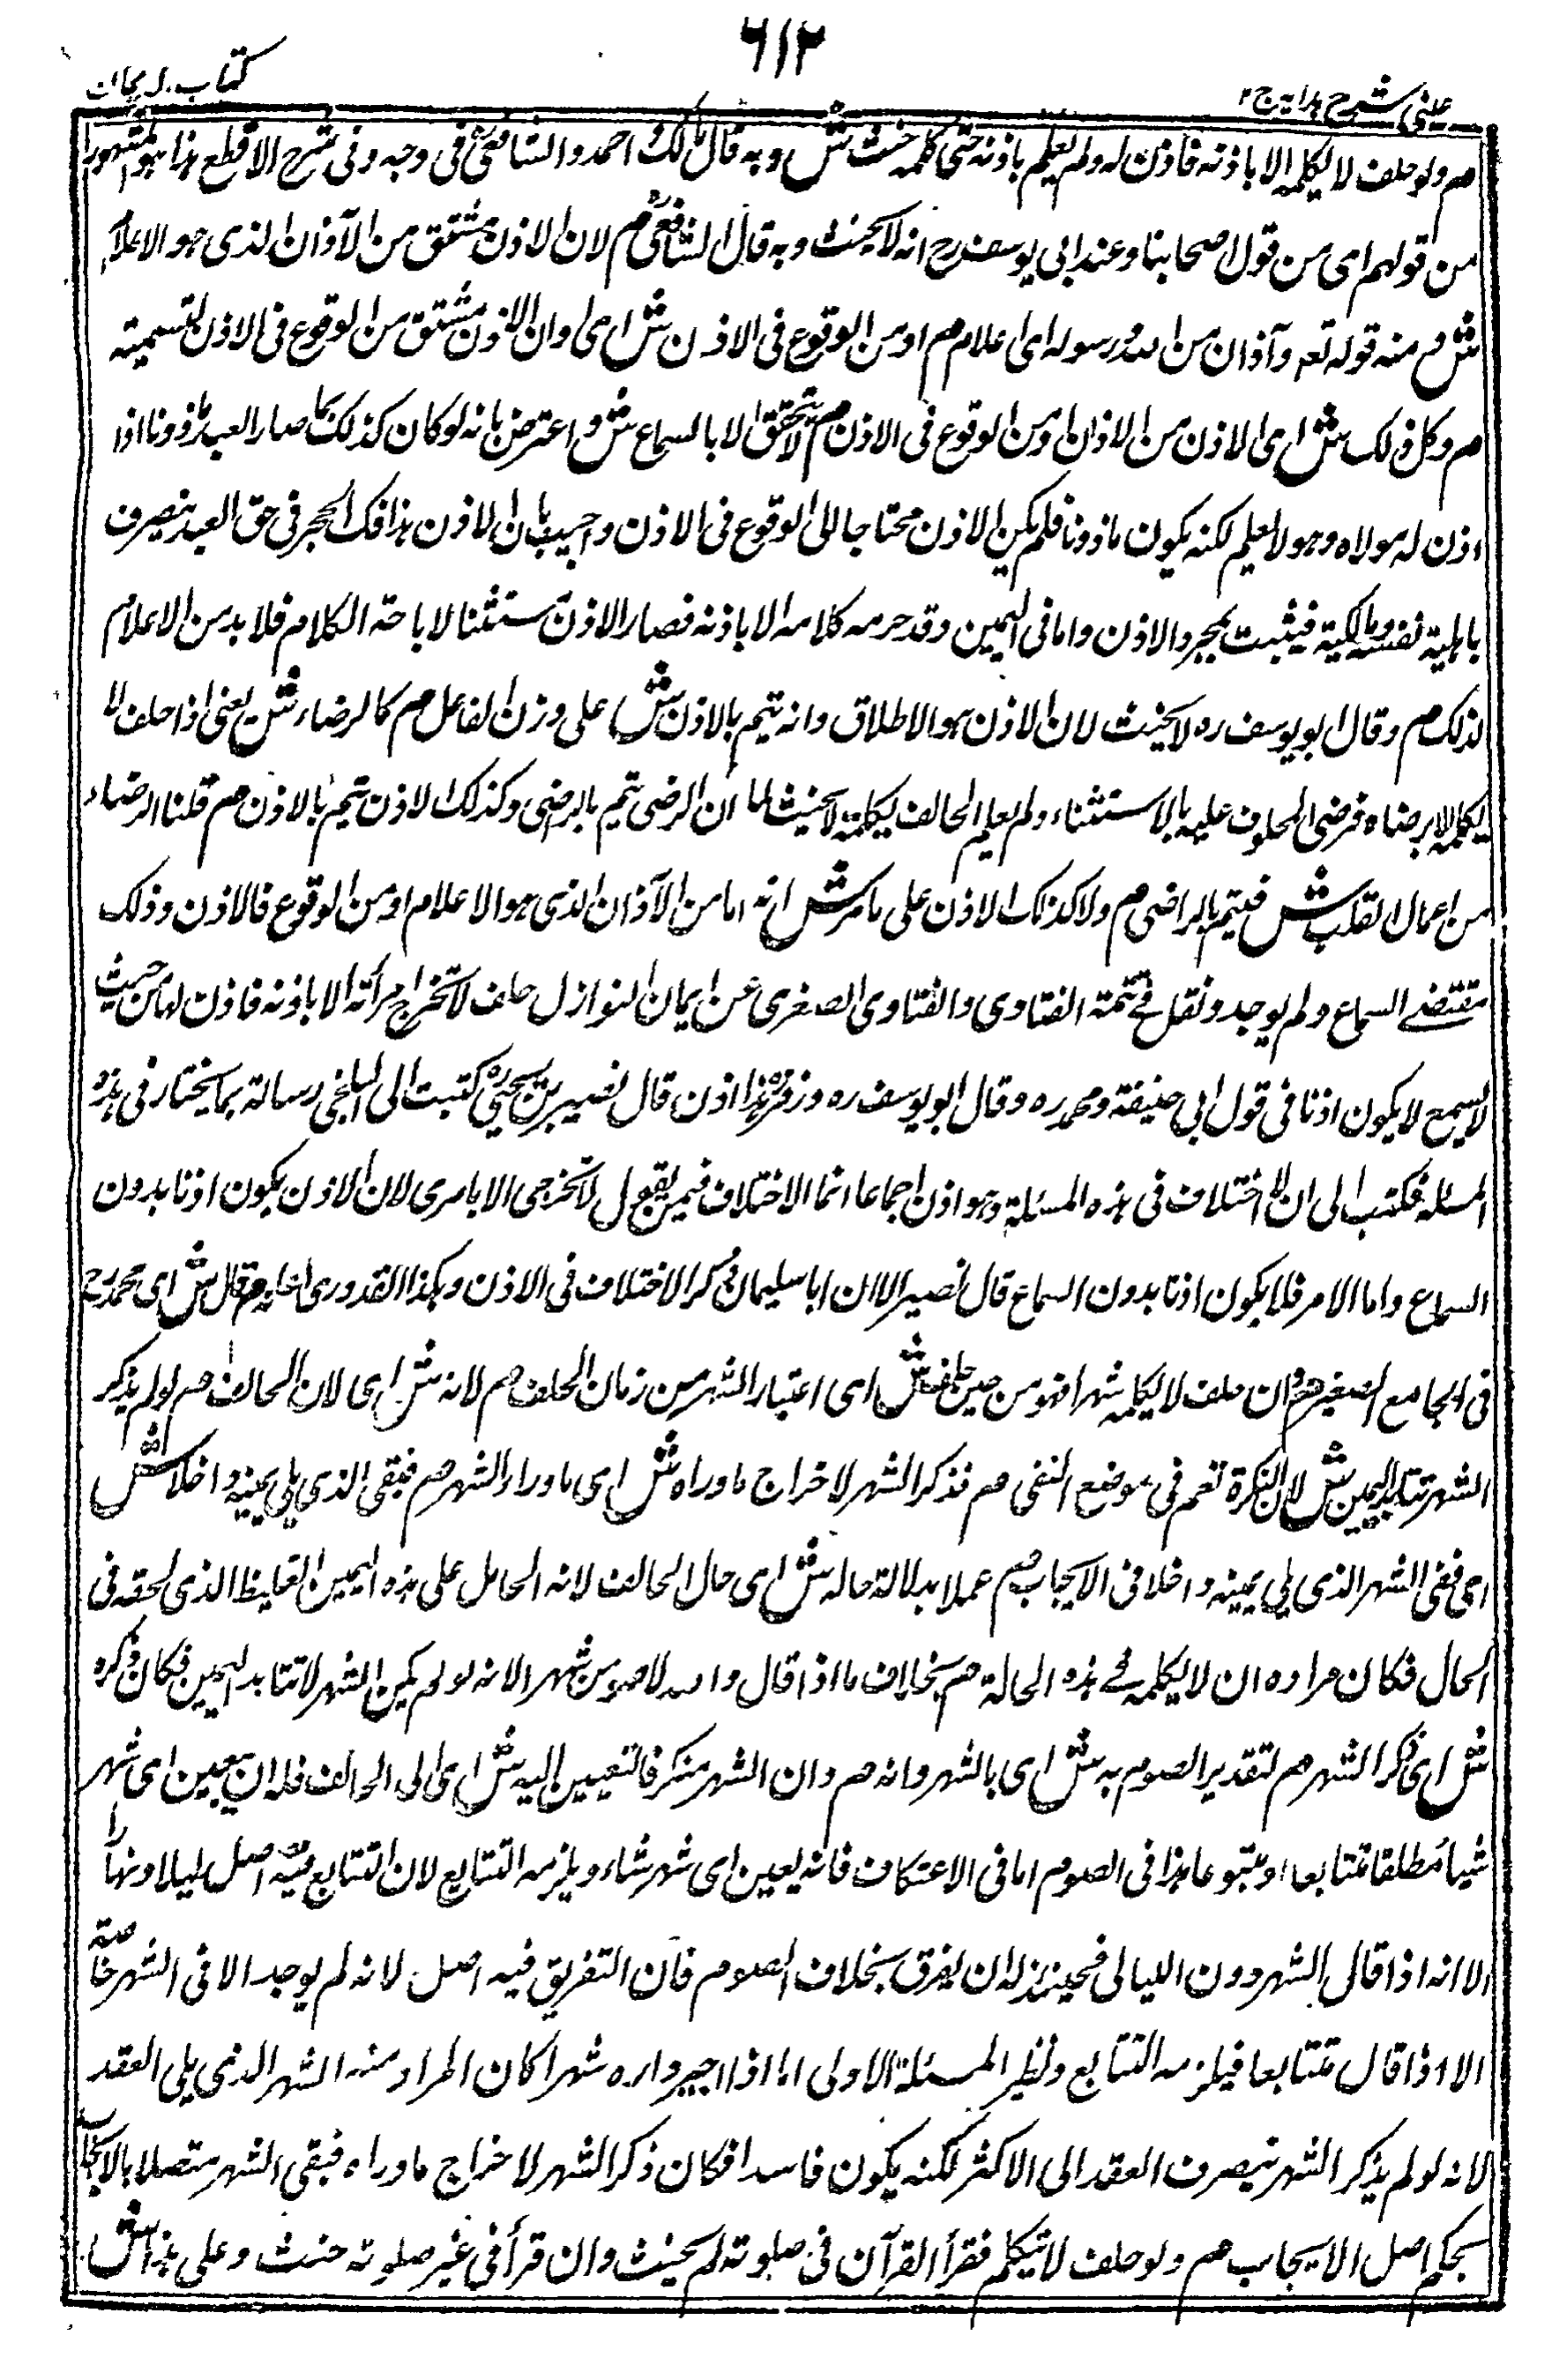 ٦١٢
عینی شرح ہدایہ ج ٢
كتاب الايمان
م ولو حلف لا يكلمه الا باذنه فاذن له ولم يعلم باذنه حتى كلمه حنث ش وبه قال مالك واحمد والشافعي في وجه وفي شرح الاقطع هذا هو المشهور
من قولهم اى من قول اصحابنا وعند ابى يوسف رح انه لا يحنث وبه قال الشافعي م لان الاذن مشتق من الآذان الذى هو الاعلام
ش ومنه قوله تعه وآذان من الله ورسوله اى اعلام م او من الوقوع فى الاذن ش اى او ان الاذن مشتق من الوقوع فى الاذن لتسميته
م وكل ذلك ش اى الاذن من الاذان او من الوقوع فى الاذن م لا يتحقق الا بالسماع ش واعترض بانه لو كان كذلك لما صار العبد ماذونا اذا
اذن له مولاه وهو لا يعلم لكنه يكون ماذونا فلم يكن الاذن محتاجا الى الوقوع فى الاذن واجيب بان الاذن هذا فك الحجر فى حق العبد يتصرف
باهلية نفسه ومالكية فيثبت بمجرد الاذن واما فى اليمين وقد حرمه كلامه الا باذنه فصار الاذن مستثنا لاباحة الكلام فلا بد من الاعلام
لذلك م وقال ابو يوسف ره لا يحنث لان الاذن هو الاطلاق وانه يتم بالاذن ش على وزن الفاعل م كالرضاء ش يعنى اذا حلف لا
يكلمه الا برضاه فرضى المحلوف عليه بالاستثناء ولم يعلم الحالف ليكلمه لا يحنث لما ان الرضى يتم بالرضى وكذلك الاذن يتم بالاذن م قلنا الرضاء
من اعمال القلب ش فيتم بالراضى م ولا كذلك الاذن على ما مر ش انه اما من الآذان الذى هو الاعلام او من الوقوع فالاذن وذلك
مقتضى السماع ولم يوجد ونقل فى تتمة الفتاوى والفتاوى الصغرى عن ايمان النوازل حلف لا تخرج امرأته الا باذنه فاذن لها من حيث
لا يسمع لا يكون اذنا فى قول ابى حنيفة ومحمد ره وقال ابو يوسف ره وزفر ره هذا اذن قال نصير بن يحيى كتبت الى البلخى رسالة بما يختار فى هذه
المسئلة فكتب الى ان لا اختلاف فى هذه المسئلة وهو اذن اجماعا انما الاختلاف فيمن يقول لا تخرجى الا بامرى لان الاذن يكون اذنا بدون
السماع واما الامر فلا يكون اذنا بدون السماع قال نصير الا ان ابا سليمان ذكر الاختلاف فى الاذن وهكذا القدورى م قال ش اى محمد رح
فى الجامع الصغير م وان حلف لا يكلمه شهرا فهو من حين حلف ش اى اعتبار الشهر من زمان الحلف م لانه ش اى لان الحالف م لو لم يذكر
الشهر تتابد اليمين ش لان النكرة تعم فى موضع النفى م فذكر الشهر لاخراج ما وراه ش اى ما وراء الشهر م فبقى الذى يلى يمينه داخلا ش
اى فبقى الشهر الذى يلى يمينه داخلا فى الايجاب م عملا بدلالة حاله ش اى حال الحالف لانه الحامل على هذه اليمين الغيظ الذى لحقه فى
الحال فكان مراده ان لا يكلمه فى هذه الحالة م بخلاف ما اذا قال والله لاصومن شهرا لانه لو لم يكن الشهر لا تتابد اليمين فكان ذكره
ش اى ذكر الشهر م لتقدير الصوم به ش اى بالشهر وانه م وان الشهر منكر فالتعيين اليه ش اى الى الحالف فله ان يعين اى شهر
شيا مطلقا متتابعا او متبوعا هذا فى الصوم اما فى الاعتكاف فانه يعين اى شهر شاء ويلزمه التتابع لان التتابع فيه اصل ليلا ونهارا
الا انه اذا قال الشهر دون الليالى فحينئذ له ان يفرق بخلاف الصوم فان التفريق فيه اصل لانه لم يوجد الا فى الشهر خاصة
الا اذا قال متتابعا فيلزمه التتابع ونظير المسئلة الاولى اما اذا اجير داره شهرا كان المراد منه الشهر الذى يلى العقد
لانه لو لم يذكر الشهر يتصرف العقد الى الاكثر لكنه يكون فاسدا فكان ذكر الشهر لاخراج ما وراه فبقى الشهر متصلا بالايجاب
بحكم اصل الايجاب م ولو حلف لا يتكلم فقرأ القرآن فى صلوته لم يحنث وان قرأ فى غير صلوته حنث وعلى هذا ش